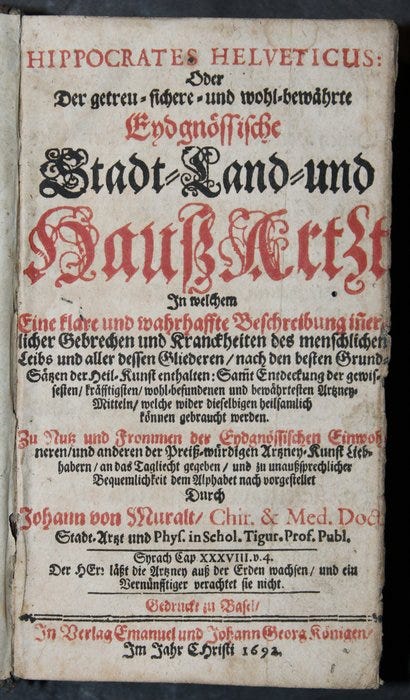 HIPPOCRATES HELVETICUS:
Oder
Der getreu-sichere-und wohl-bewährte
Eydgnössische
Stadt-Land-und
Hauß Artzt
In welchem
Eine klare und wahrhaffte Beschreibung iñer
licher Gebrechen und Kranckheiten des menschlichen
Leibs und aller dessen Gliederen/nach den besten Grund-
Sätzen der Heil-Kunst enthalten: Samt Entdeckung der gewis-
sesten/kräfftigsten/wohl-befundenen und bewährtesten Artzney-
Mitteln/welche wider dieselbigen heilsamlich
können gebraucht werden.
Zu Nutz und Frommen der Eydgnössischen Einwoh
neren/und anderen der Preiß-würdigen Artzney-Kunst Lieb-
habern/an das Tagliecht gegeben/und zu unaußsprechlicher
Bequemlichkeit dem Alphabet nach vorgestellet
Durch
Johann von Muralt/Chir. & Med. Doct
Stadt-Artzt und Phys. in Schol. Tigur. Prof. Publ.
Syrach Cap XXXVIII. v. 4.
Der HErr läßt die Artzney auß der Erden wachsen/und ein
Vernünfftiger verachtet sie nicht.
Gedruckt zu Basel/
In Verlag Emanuel und Johann Georg Königen/
Im Jahr CHristi 1692.